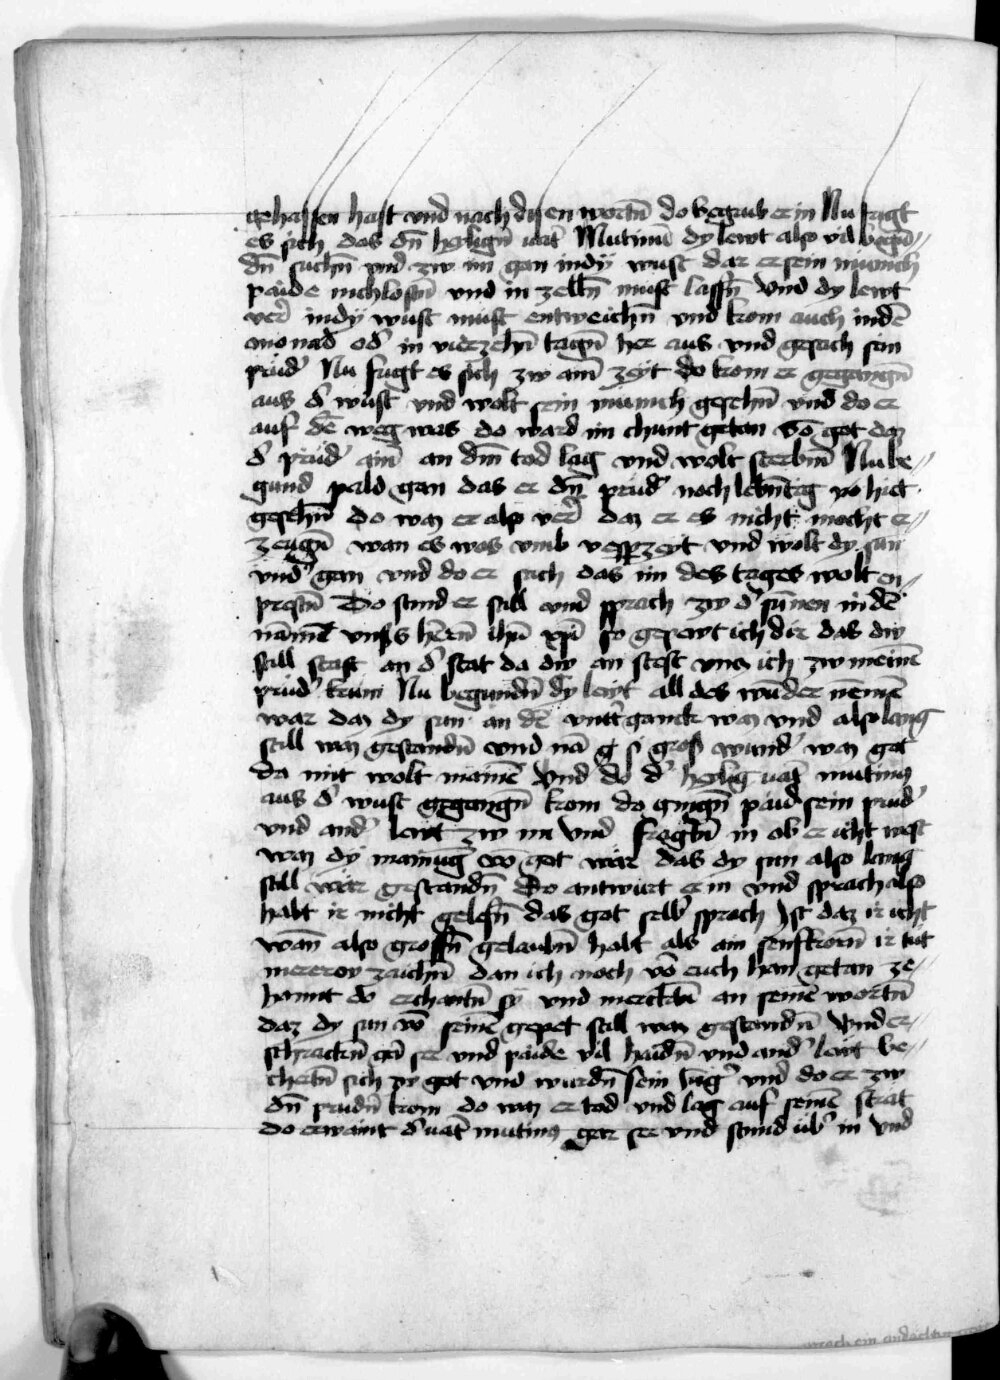 gehassen hast vnd nach dysen wortn̄ do begrub er in Nu fugt
es sich das dn̄ heylign̄ uat' Mutinū dy lewt also vil begūn
dn̄ suchn̄ vnd zw im gan indy wust dar er sein munich
paide nichlostn̄ vnd in zelln̄ must lassn̄ Vnd dy lewt
ver' indy wust must entweichn̄ vnd krom auch indē
monad od' in vierzehn̄ tagn̄ her aus vnd gesach sein
prud' Nu fugt es sich zw ainē zeyt do krom er gegangn̄
aus d' wust vnd wolt sein munich gesehn̄ vnd do er
auf dē weg was do ward im chunt getan vō got daz
d' prud' ainē an dm̄ tod lag vnd wolt sterbm̄ Nu be-
gund pald gan das er dn̄ prud' noch lebntig po hiet
gesehn̄ do waz er also ver' daz er es nicht mocht er-
zeugn̄ wan es was vmb vesperzeyt vnd wolt dy sun
vnd' gan vnd do er sach das im des tages wolt en-
prestn̄ Do stund er still vnd sprach zw d' sunnen in dē
namē vnss h'ern̄ ihū xpī so gepewt ich dir das diw
still stest an d' stat da diw an stest vncz ich zw meinē
prud' kum Nu begundn̄ dy lewt all des wunder nemē
war daz dy sun an dē vntt'ganck waz vnd also lang
still waz gestandn̄ vnd nā gsi gros wund' waz got
da mit wolt mainē Vnd do d' heylig uat' mutinus
aus d' wust gegangn̄ krom do gingn̄ paid sein prud'
vnd and' lewt zw im Vnd fragtn̄ in ob er icht west
waz dy mainūg vō got wär das dy sun also lang
still wär gestandn̄ Do antwurt er in vnd sprach also
habt ir nicht gelesn̄ das got selb' sprach Ist daz ir icht
wān also grossn̄ gelaubn̄ habt als ain senfkorn̄ ir tut
mererew zaichn̄ dan ich noch vō euch han getan ze-
hannt do erchantn̄ sy vnd mercktn̄ an seinē wortn̄
daz dy sun vō seinē gepet still waz gestandn̄ Vnd er-
schracktn̄ gar ser vnd paide vil haidn̄ vnd and' lewt be-
chertn̄ sich zy got vnd wurdn̄ sein iūg' vnd do er zw
dn̄ prudn̄ krom do waz er tod vnd lag auf seinē strat
do erwaint d' uat' mutinus gar ser vnd stund üb' in Vnd